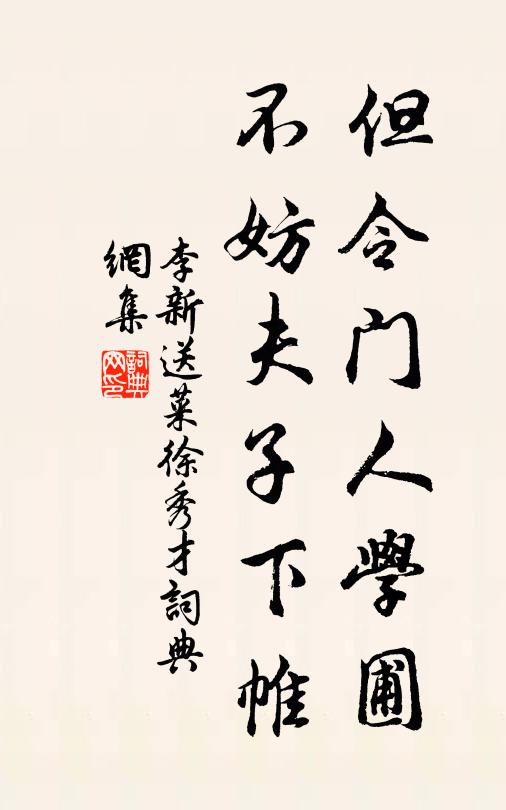 但令門人學圃
不妨夫子下帷
李新送菜徐秀才詞典
網集
詞典
网印